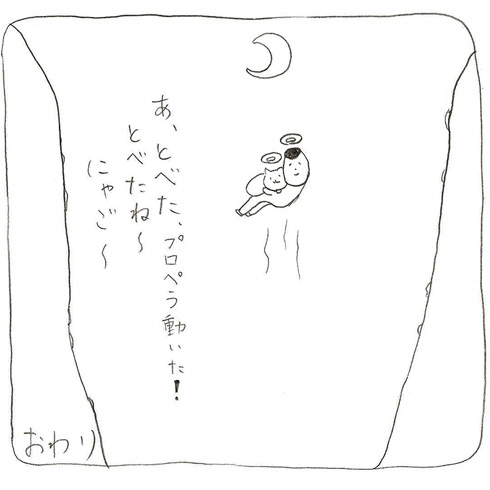 あ、とべた、プロペラ動いた!
とべたね〜
にゃご〜
おわり